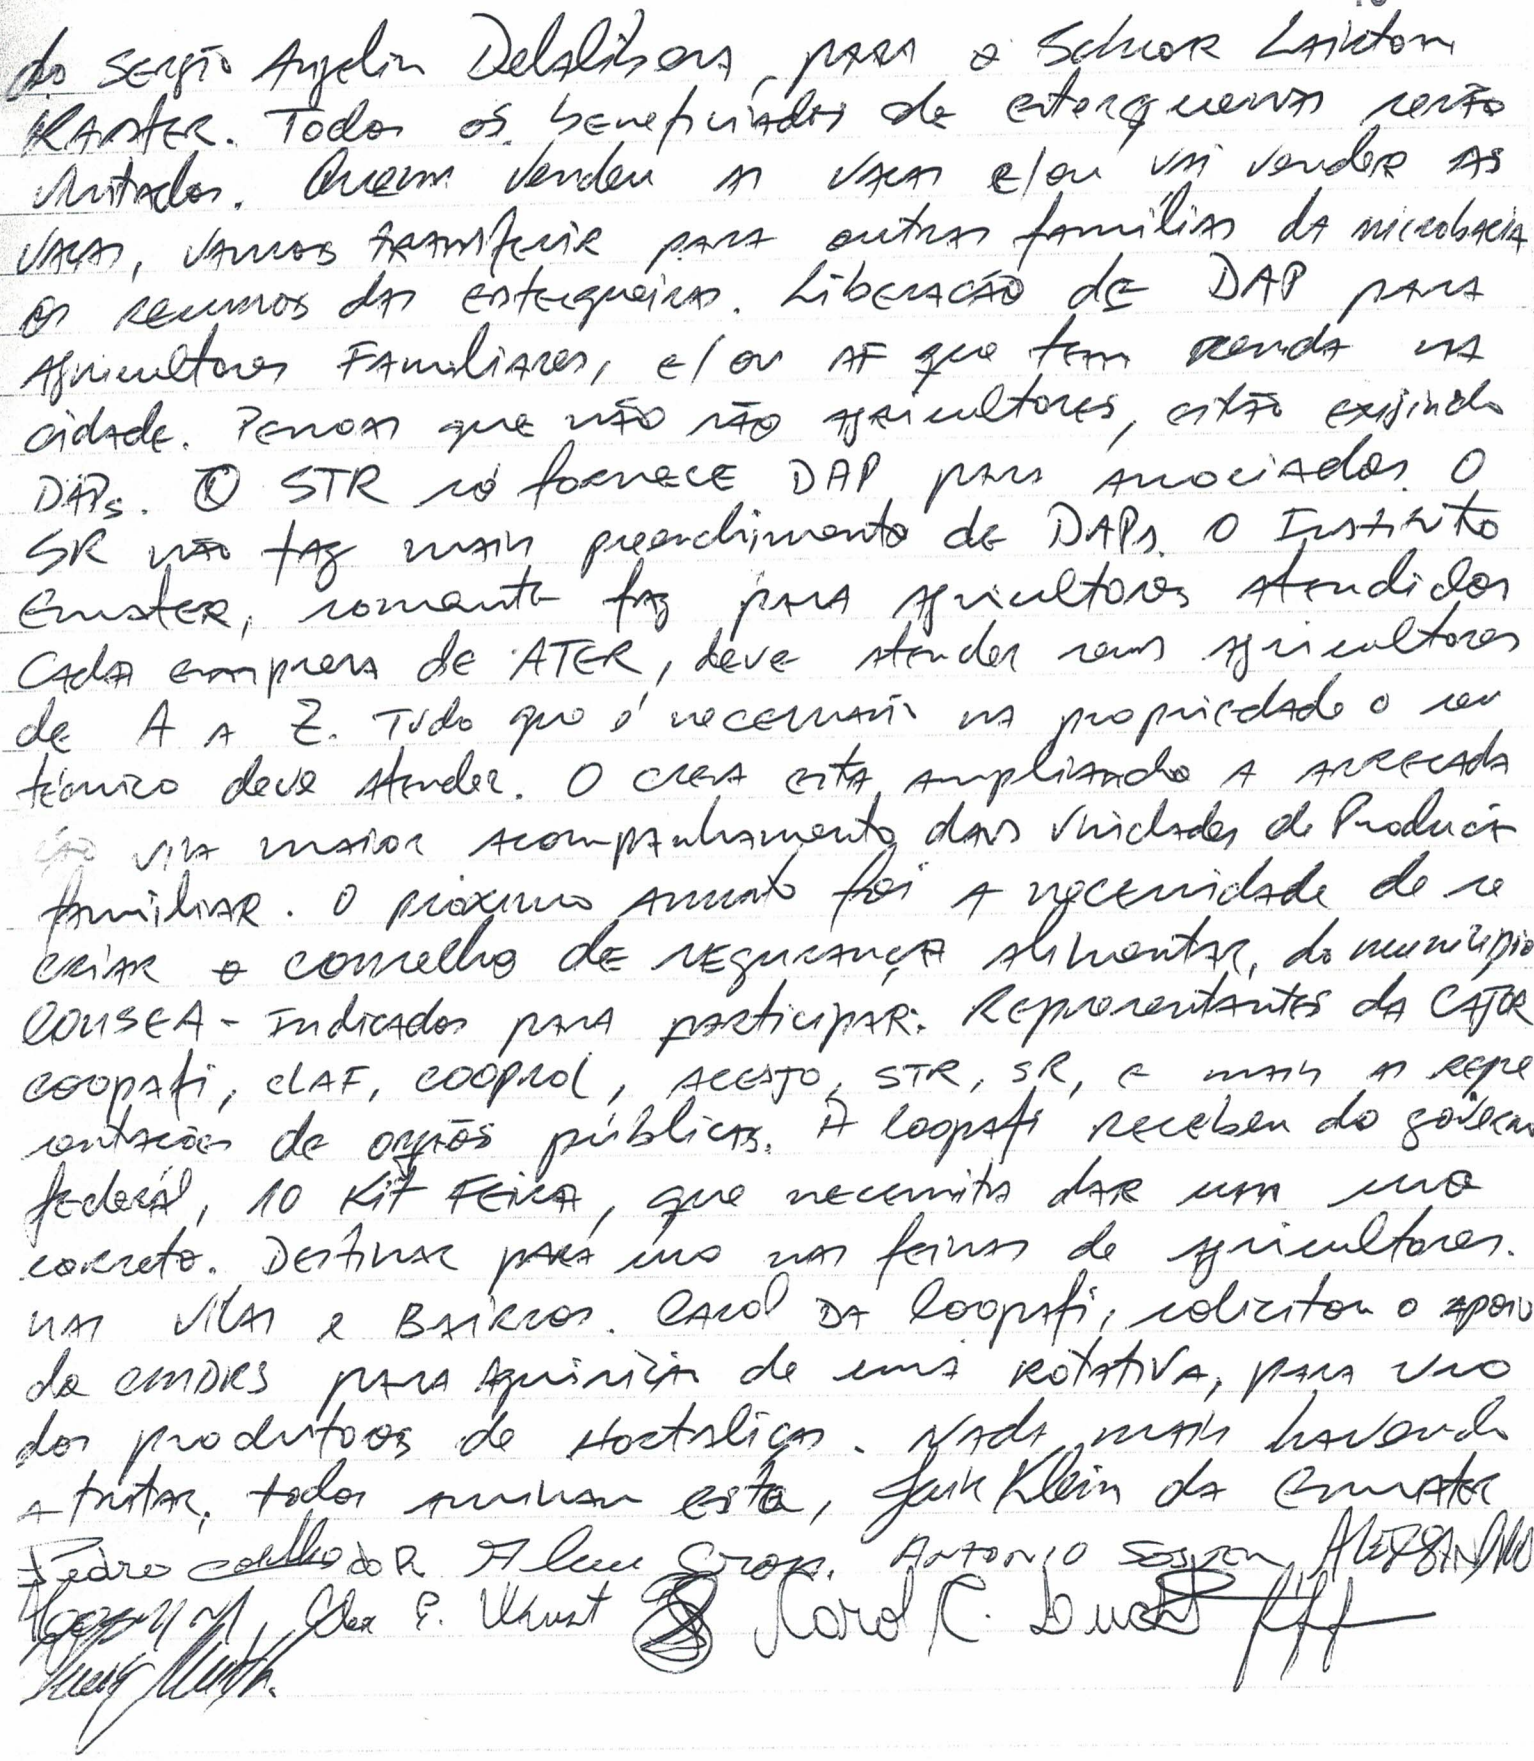 do Sergio Angelin Delalibera, para o Senhor Laintom
Karster. Todos os beneficiados de esterqueiras serão
visitados. Quem vendeu as vacas e/ou vai vender as
vacas, vamos transferir para outras famílias da microbacia
os recursos das esterqueiras. Liberacão de DAP para
Agricultores Familiares, e/ou AF que tem renda na
cidade. Pessoas que não são agricultores, estão exijindo
DAPs. O STR só fornece DAP para associados. O
SR não faz mais preenchimento de DAPs. O Instituto
Emater, somente faz para agricultores atendidos
Cada empresa de ATER, deve atender seus agricultores
de A a Z. Tudo que é necessario na propriedade o seu
técnico deve atender. O Crea esta ampliando a arrecada
ção via maior acompanhamento das Unidades de Producão
familiar. O próximo assunto foi a necessidade de se
criar o conselho de segurança alimentar, do municipio
CONSEA - Indicados para participar: Representantes da CAJOR
Coopafi, CLAF, Cooprol, ACESJO, STR, SR, e mais as repre
sentações de orgãos públicos. A Coopafi recebeu do governo
federal, 10 Kit Feira, que necessita dar um uso
correto. Destinar para uso nas feiras de agricultores.
nas vilas e Bairros. Carol da Coopafi, solicitou o apoio
do CMDRS para aquisição de uma rotativa, para uso
dos produtores de Hortaliças. Nada mais havendo
a tratar, todos assinam esta, Jair Klein da Emater
Pedro Coelho do R. Antonio
Carol C.